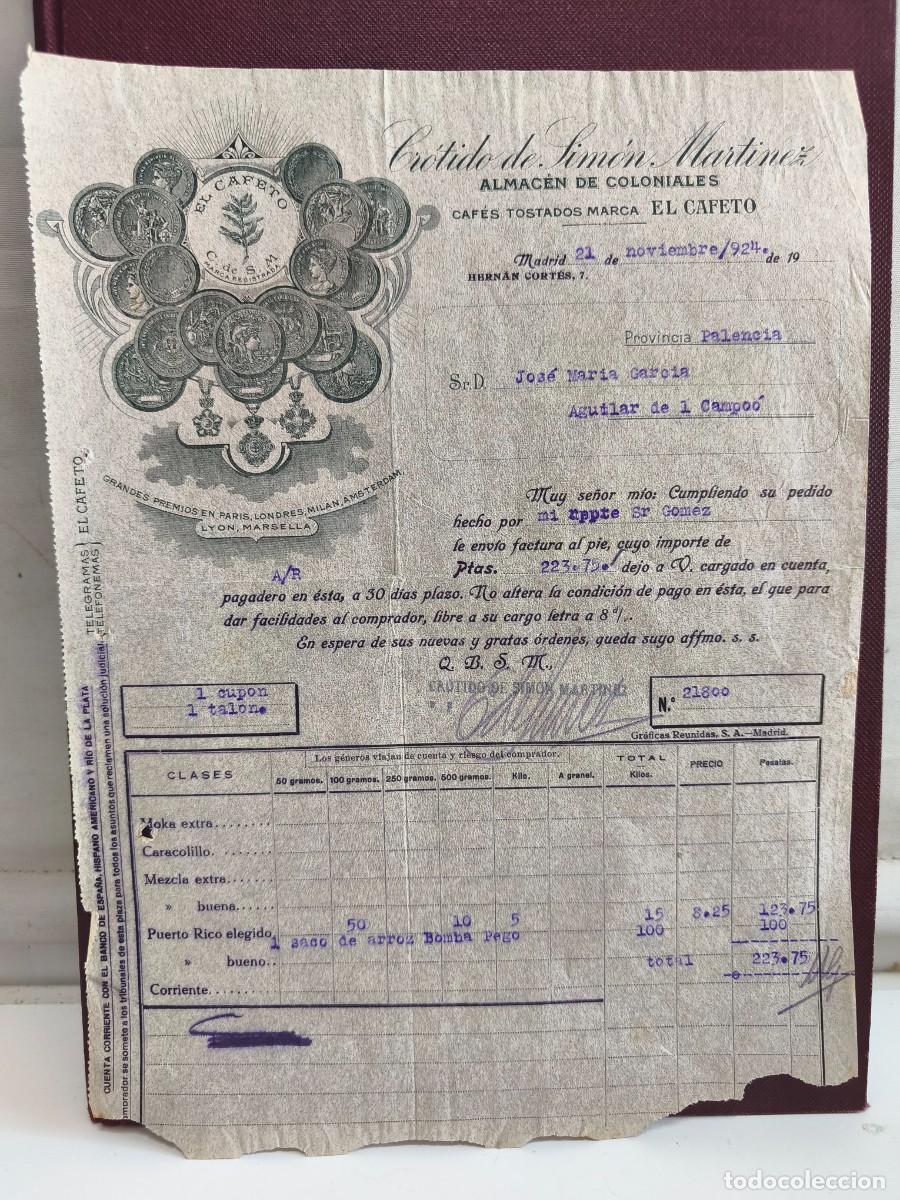 Crótido de Simón Martinez
ALMACÉN DE COLONIALES
CAFÉS TOSTADOS MARCA EL CAFETO
EL CAFETO
C. de S. M.
MARCA REGISTRADA
Madrid 21 de noviembre/924. de 19
HERNÁN CORTÉS, 7.
Provincia Palencia
Sr. D. José Maria Garcia
Aguilar de l Campoó
GRANDES PREMIOS EN PARIS, LONDRES, MILAN, AMSTERDAM,
LYON, MARSELLA
TELEGRAMAS
TELEFONEMAS
EL CAFETO.
Muy señor mío: Cumpliendo su pedido
hecho por mi rppte Sr Gomez
le envío factura al pie, cuyo importe de
Ptas. 223.75. dejo a V. cargado en cuenta,
A/R
pagadero en ésta, a 30 días plazo. No altera la condición de pago en ésta, el que para
dar facilidades al comprador, libre a su cargo letra a 8 d/.
En espera de sus nuevas y gratas órdenes, queda suyo affmo. s. s.
Q. B. S. M.,
CRÓTIDO DE SIMÓN MARTINEZ
P. P.
1 cupon
1 talon.
N.º 21800
Gráficas Reunidas, S. A.—Madrid.
Los géneros viajan de cuenta y riesgo del comprador.
CLASES 50 gramos. 100 gramos. 250 gramos. 500 gramos. Kilo. A granel. TOTAL Kilos. PRECIO Pesetas.
Moka extra........
Caracolillo.......
Mezcla extra......
» buena......
Puerto Rico elegido 50 10 5 15 8.25 123.75
1 saco de arroz Bomba Pego 100 100
» bueno.. total 223.75
Corriente.........
CUENTA CORRIENTE CON EL BANCO DE ESPAÑA, HISPANO AMERICANO Y RÍO DE LA PLATA
omprador se somete a los tribunales de esta plaza para todos los asuntos que reclamen una solución judicial.
todocoleccion